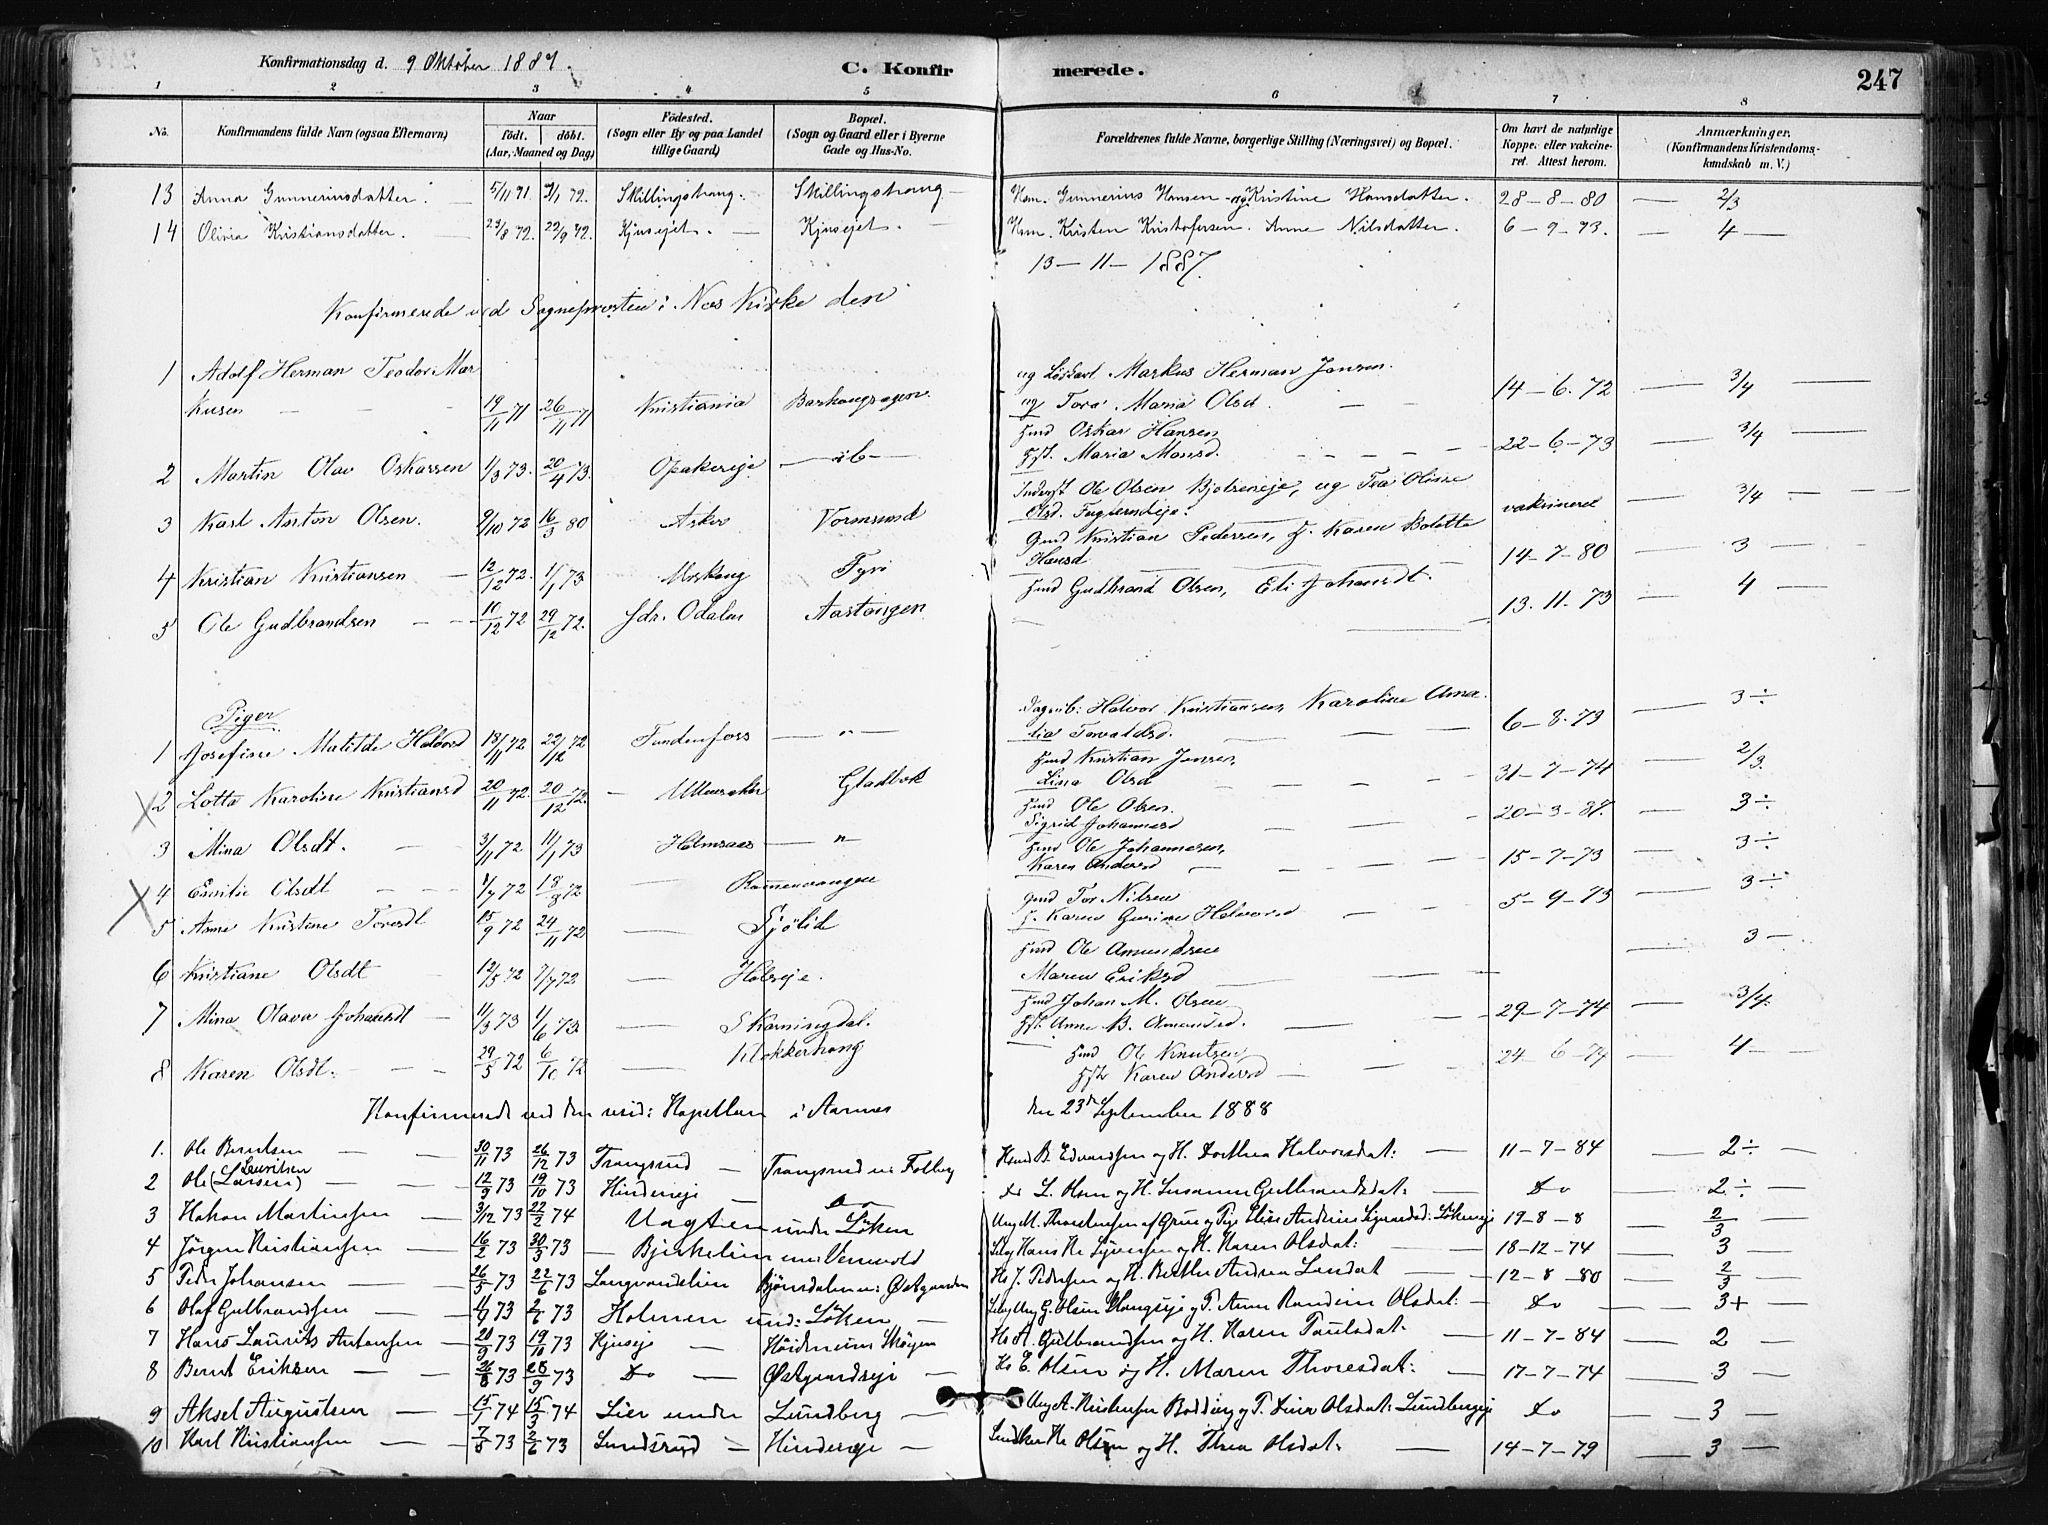 Konfirmationsdag d. 9 Oktober 1887.
C. Konfirmerede.
247
1 2 3 4 5 6 7 8
No. Konfirmandens fulde Navn (ogsaa Efternavn) Naar født. døbt. (Aar, Maaned og Dag) Fødested. (Sogn eller By og paa Landet tillige Gaard) Bopæl. (Sogn og Gaard eller i Byerne Gade og Hus-No. Forældrenes fulde Navne, borgerlige Stilling (Næringsvei) og Bopæl. Om havt de naturlige Kopper eller vakcineret. Attest herom. Anmærkninger. (Konfirmandens Kristendomskundskab m. V.)
13 Anna Gunneriusdatter. 5/11 71 7/1 72. Skillingshaug. Skillingshaug Hsm. Gunnerius Hansen og Kristine Hansdatter. 28-8-80 2/3
14 Olivia Kristiansdatter. 23/8 72. 22/9 72. Kjusejet. Kjusejet. Hsm. Kristen Kristofersen. Anne Nilsdatter. 6-9-73. 4
Konfirmerede ved Sognepresten i Nes Kirke den 13-11-1887.
1 Adolf Herman Teodor Markusen 19/11 71 26/11 71 Kristiania Barhaugsagen ug Markus Herman Jonsen. ug Tora Maria Olsd. 14-6-72 3/4
2 Martin Olav Oskarsen 1/3 73. 20/4 73. Opakereje ib Hmd Oskar Hansen Hst. Maria Monsd. 22-6-73 3/4
3 Karl Anton Olsen. 9/10 72 16/5 80 Asker Vormsund Inderst Ole Olsen, ug vakcineret 3/4
4 Kristian Kristiansen 12/12 72. 1/1 73 Moskaug Fyri Gmd Kristian Pedersen, H. Karen Hansd 14-7-80 3
5 Ole Gudbrandsen 10/12 72 29/12 72. Sdr. Odalen Aastangen Hmd Gudbrand Olsen, Eli Johansdt. 13.11.73 4
Piger
1 Josefine Matilde Halvorsd 18/11 72 22/12 72 Fundenfoss " Halvor Kristiansen, Karoline Amalia Torvaldsd. 6-8-73 3÷
2 Lotta Karoline Kristiansd 20/11 72. 20/12 72. Ullensaker Gladbak Hmd Kristian Jensen, Lina Olsd 31-7-74 2/3.
3 Mina Olsdt. 3/11 72 11/1 73 Holmsaas " Hmd Ole Olsen. Sigrid Johannesd 20-3-87. 3÷
4 Emilie Olsdt 1/7 72 18/8 72 Hmd Ole Johannesen, Karen Andersd 15-7-73 3÷
5 Anne Kristine Toresdt 15/9 72 24/11 72 Sjølid Gmd Tor Nilsen H. Karen Gurine Halvorsd 5-9-73 3÷
6 Kristiane Olsdt 12/5 72 7/7 72 Holseje. Hmd Ole Amundsen Maren Eriksd 3
7 Mina Olava Johansdt 11/3 73 1/6 73. Skarningdal. Hmd Johan M. Olsen Hst. Anne B. Amundsd. 29-7-74 3/4.
8 Karen Olsdt. 29/5 72 6/10 72 Klokkerhaug Hmd Ole Knutsen, Hst Karen Andersd 24-6-74 4
Konfirmerede ved den resid: Kapellan i Aarnes den 23de September 1888
1. Ole Berntsen 30/11 73 26/12 73 Trangsrud Trangsrud u: Folberg Hmd B. Edvardsen og H. Dorthea Halvorsdat: 11-7-84 2÷
2 Ole (Larsen) Lauritsen 12/9 73 19/10 73 Hindereje Do L. Olsen og H. Susanne Gulbrandsdat: Do 2÷
3 Hakon Martinsen 3/12 73 22/2 74 Vagten under Løken Ung M. Thorstensen af Grue og Pige Elise Andrine 19-8-8 2/3
4 Jörgen Kristiansen 16/2 73 30/3 73 Bjerkelien und: Vennevold Hans Kr. og H. Karen Olsdat: 18-12-74 3
5 Peder Johansen 26/5 73 22/6 73 Langrandelien Bjørnsdalen u: Østgarden Hs J. Pedersen og H. Berthe Andrea Larsdat 12-8-80 2/3
6 Olaf Gulbrandsen 4/4 73 2/6 73 Holmen und: Løken Ung G. Olsen Haugseje og P. Anne Randine Olsdat: Do 3+
7 Hans Laurits Antonsen 20/9 73 19/10 73 Kjuseje Hs A. Gulbrandsen og H. Karen Paulsdat. 11-7-84 2
8 Bernt Eriksen 26/8 73 28/9 73 Do Østgaardseje Hs E. Olsen og H. Maren Thoresdat: 17-7-74 3
9 Aksel Augustsen 15/1 74 15/3 74 Lier under Lundberg Ung A. Kristensen og P. Olsdat: Lundbergeje Do 3
10 Karl Kristiansen 7/5 73 2/6 73 Lundsrud Hindereje Kr. Olsen og H. Thea Olsdat: 14-7-79 3